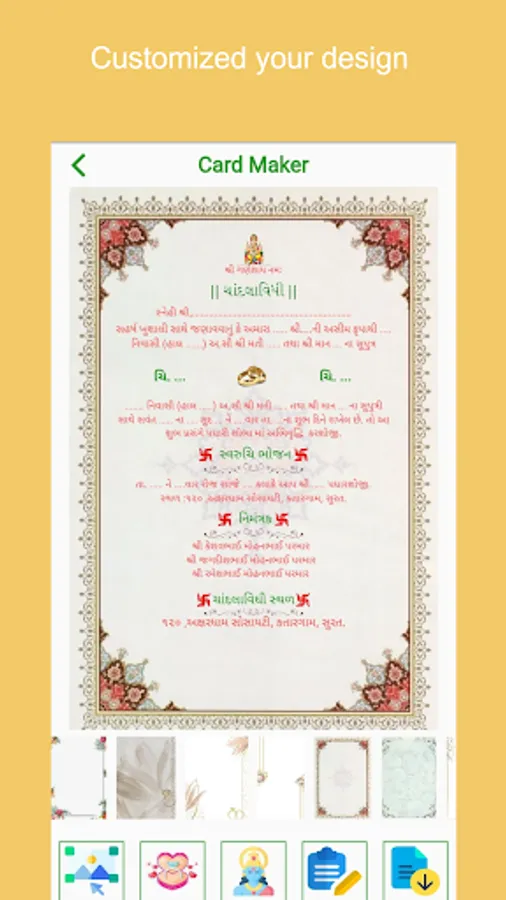 Customized your design
Card Maker
શ્રી ગણેશાય નમઃ
|| ચાંદલાવિધી ||
સ્નેહી શ્રી.
સહર્ષ ખુશાલી સાથે જણાવવાનું કે અમારા ..... શ્રી....ની અસીમ કૃપાથી ....
નિવાસી (હાલ ......) અ.સૌ શ્રી મતી ..... તથા શ્રી માન ... ના સુપુત્ર
ચિ. ... ચિ. ...
...... નિવાસી (હાલ .....) અ.સૌ શ્રી મતી ..... તથા શ્રી માન ... ના સુપુત્રી
સાથે સવંત ..... ના .... સુદ ... ને ... વાર તા. ...ના શુભ દિને રાખેલ છે. તો આ
શુભ પ્રસંગે પધારી શોભા માં અભિવૃદ્ધિ કરશોજી.
卐 સ્વરુચિ ભોજન 卐
તા. .... ને ...વાર રોજ સાંજે ... કલાકે આપ શ્રી..... પધારશોજી.
સ્થળ :૧૨૦ ,અક્ષરધામ સોસાયટી, કતારગામ, સુરત.
卐 નિમંત્રક 卐
શ્રી કેશવભાઈ મોહનભાઈ પરમાર
શ્રી જગદીશભાઈ મોહનભાઈ પરમાર
શ્રી રમેશભાઈ મોહનભાઈ પરમાર
卐ચાંદલાવિધી સ્થળ卐
૧૨૦ ,અક્ષરધામ સોસાયટી, કતારગામ, સુરત.